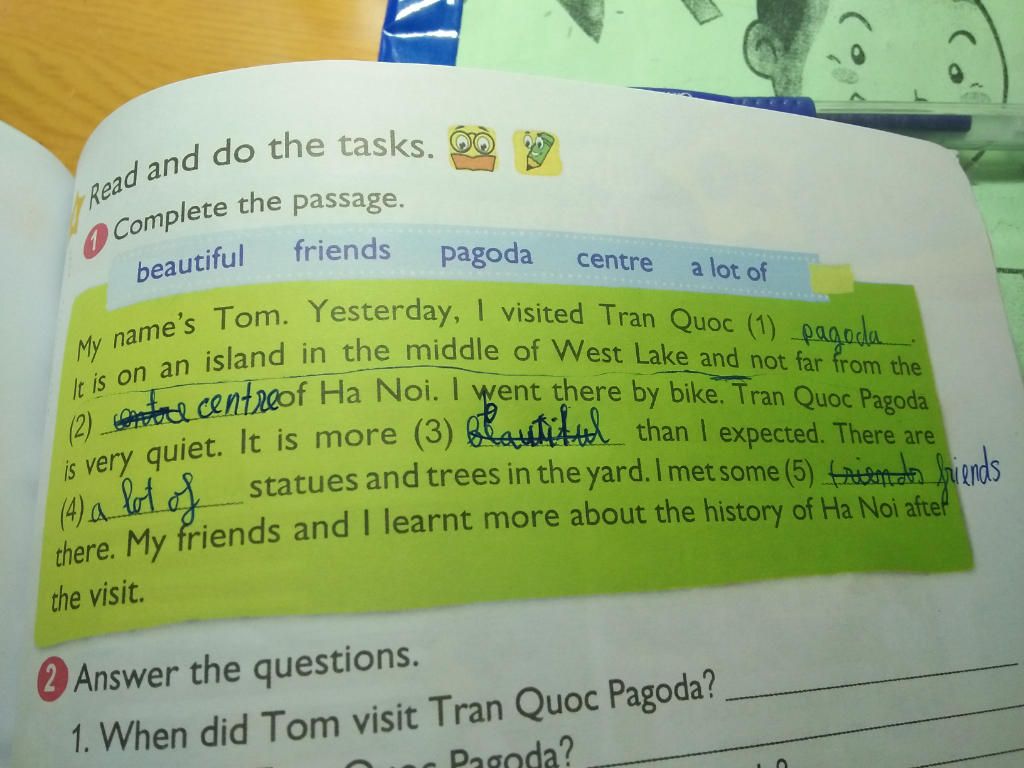 Read and do the tasks.
1 Complete the passage.
beautiful friends pagoda centre a lot of
My name's Tom. Yesterday, I visited Tran Quoc (1) pagoda.
It is on an island in the middle of West Lake and not far from the
(2) centre centre of Ha Noi. I went there by bike. Tran Quoc Pagoda
is very quiet. It is more (3) beautiful than I expected. There are
(4) a lot of statues and trees in the yard. I met some (5) friends friends
there. My friends and I learnt more about the history of Ha Noi after
the visit.
2 Answer the questions.
1. When did Tom visit Tran Quoc Pagoda?
Quoc Pagoda?